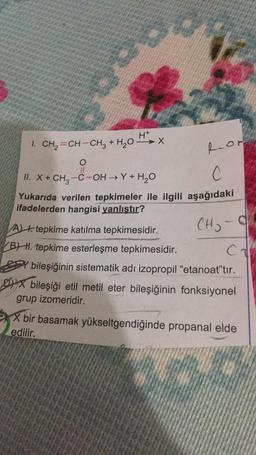 H⁺
I. CH₂=CH–CH₃ + H₂O → X
R-OH
O
II. X + CH₃–C–OH → Y + H₂O
C
Yukarıda verilen tepkimeler ile ilgili aşağıdaki
ifadelerden hangisi yanlıştır?
CH₃-C
A) I. tepkime katılma tepkimesidir.
B) II. tepkime esterleşme tepkimesidir.
Y bileşiğinin sistematik adı izopropil "etanoat"tır.
D) X bileşiği etil metil eter bileşiğinin fonksiyonel
grup izomeridir.
X bir basamak yükseltgendiğinde propanal elde
edilir.